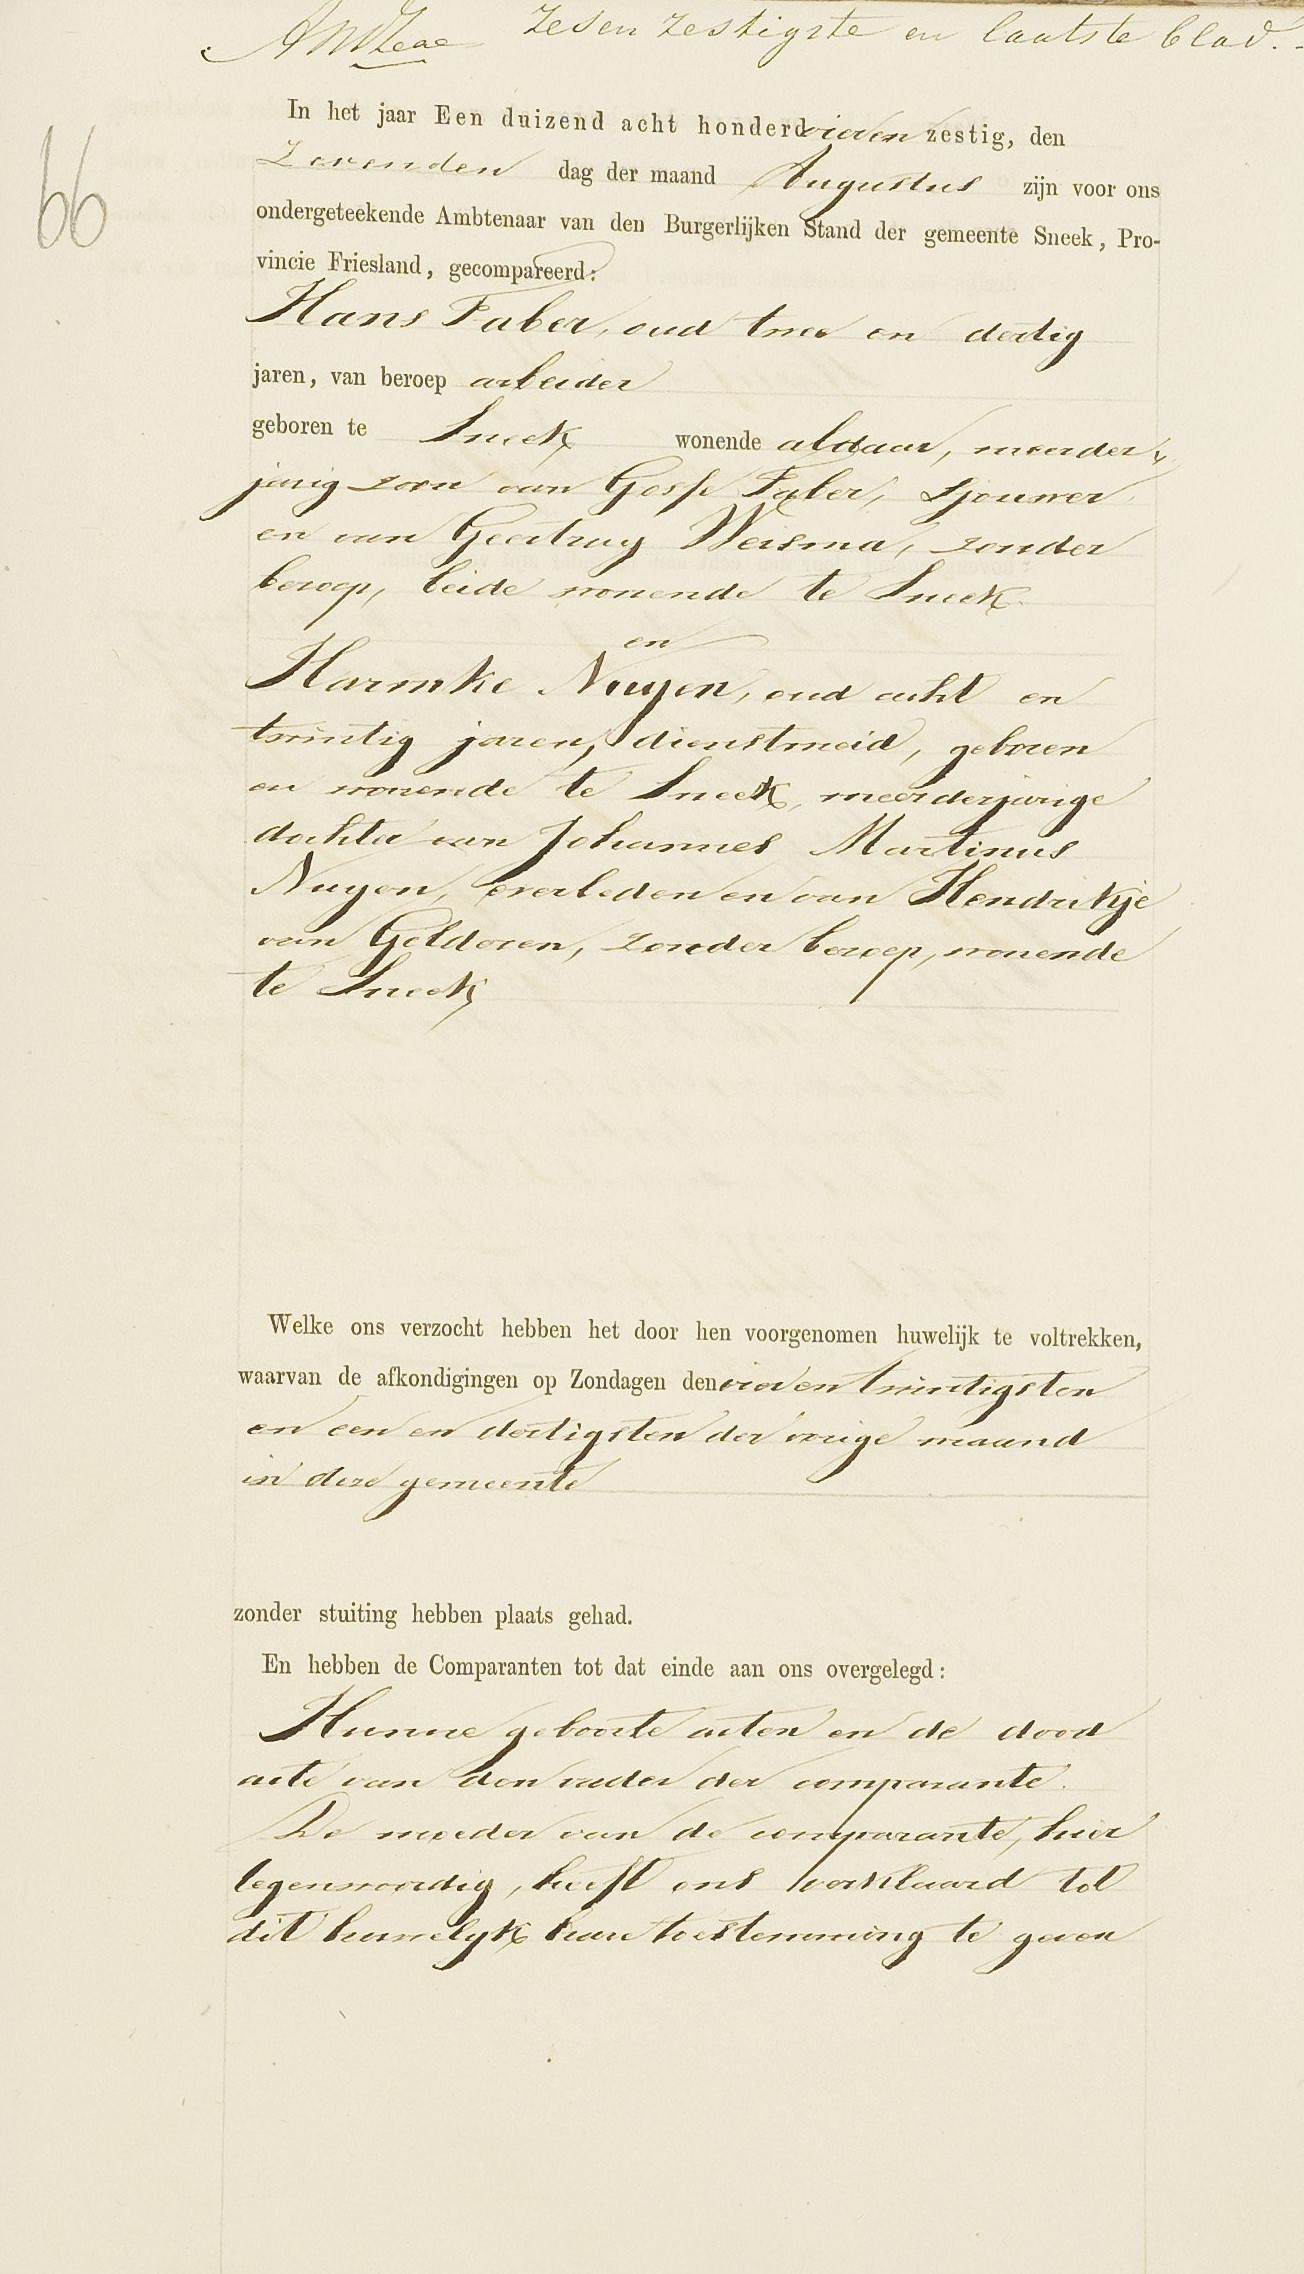 zes en zestigste en laatste blad.
66
In het jaar Een duizend acht honderd vier en zestig, den
zevenden dag der maand Augustus zijn voor ons
ondergeteekende Ambtenaar van den Burgerlijken Stand der gemeente Sneek, Pro-
vincie Friesland, gecompareerd:
Hans Faber, oud twee en dertig
jaren, van beroep arbeider
geboren te Sneek wonende aldaar, meerder„
jarig zoon van Gosse Faber, sjouwer
en van Geertruy Weisma, zonder
beroep, beide wonende te Sneek
en
Harmke Nuyen, oud acht en
twintig jaren, dienstmeid, geboren
en wonende te Sneek, meerderjarige
dochter van Johannes Martinus
Nuyen, overleden en van Hendrikje
van Gelderen, zonder beroep, wonende
te Sneek
Welke ons verzocht hebben het door hen voorgenomen huwelijk te voltrekken,
waarvan de afkondigingen op Zondagen den vier en twintigsten
en een en dertigsten der vorige maand
in deze gemeente
zonder stuiting hebben plaats gehad.
En hebben de Comparanten tot dat einde aan ons overgelegd:
Hunne geboorte acten en de dood
acte van den vader der comparante.
De moeder van de comparante, hier
tegenwoordig, heeft ons verklaard tot
dit huwelyk hare toestemming te geven